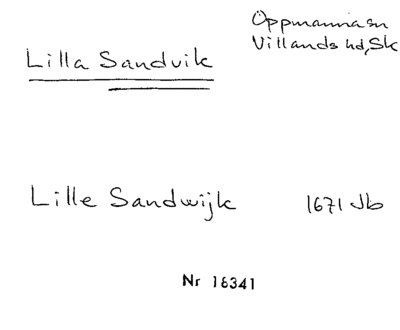 Oppmanna sn
Villands hd, Sk
Lilla Sandvik
Lille Sandwijk 1671 Jb
Nr 16341